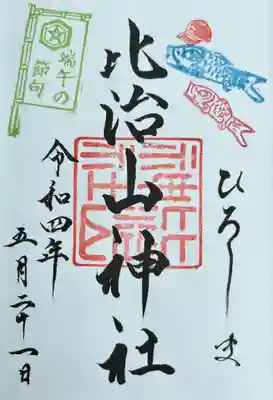 ひろしま
比治山神社
端午の
節句
令和四年
五月二十一日